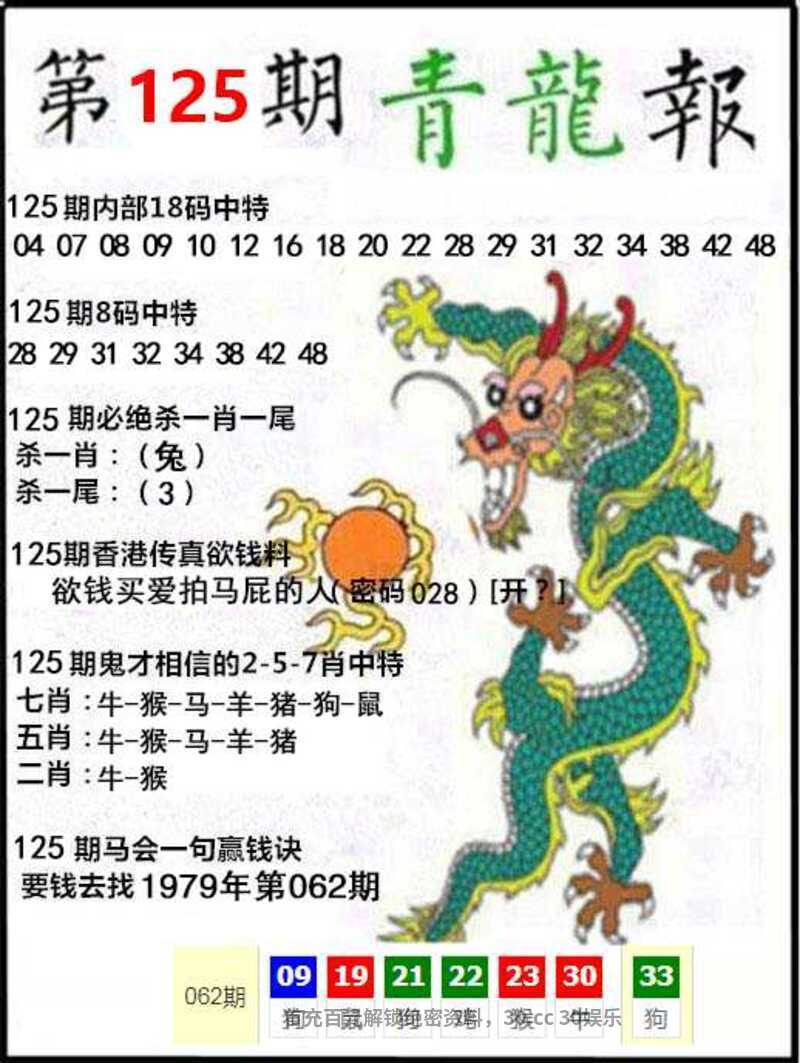 第125期青龍報
125期内部18码中特
04 07 08 09 10 12 16 18 20 22 28 29 31 32 34 38 42 48
125期8码中特
28 29 31 32 34 38 42 48
125期必绝杀一肖一尾
杀一肖：（兔）
杀一尾：（3）
125期香港传真欲钱料
欲钱买爱拍马屁的人（密码028）[开？]
125期鬼才相信的2-5-7肖中特
七肖：牛-猴-马-羊-猪-狗-鼠
五肖：牛-猴-马-羊-猪
二肖：牛-猴
125期马会一句赢钱诀
要钱去找1979年第062期
09 19 21 22 23 30 33
062期
充百 解锁绝密资料，3 cc 3 娱乐
狗